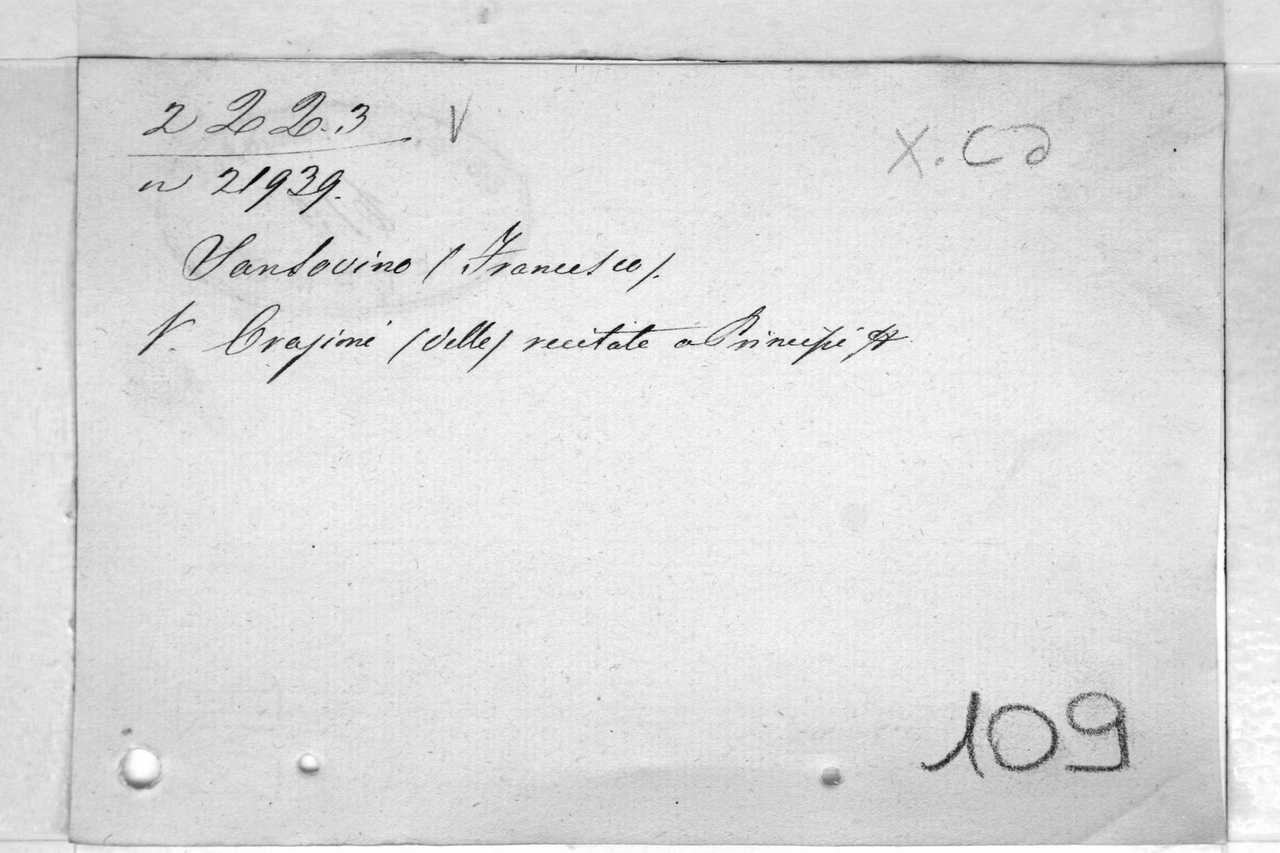 2 22.3 V
X. Cd
n 21939.
Sansovino (Francesco).
V. Orazioni (delle) recitate a Principi &
109